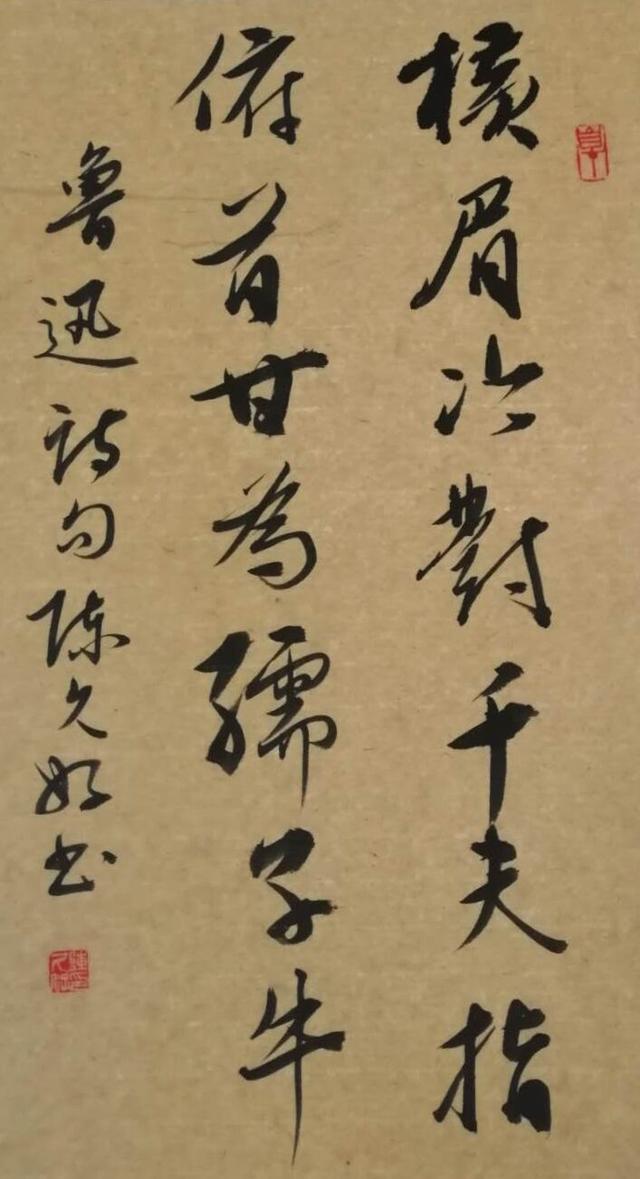 橫眉冷對千夫指
俯首甘為孺子牛
魯迅詩句陳久好書